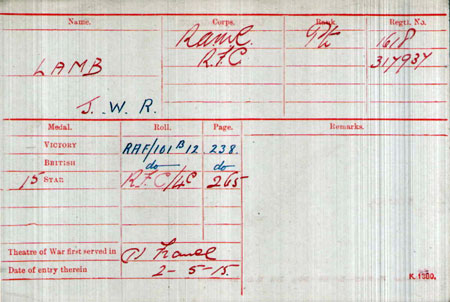 Name. Corps. Rank. Regtl. No.
RAMC. Pte 1618
LAMB R.F.C 317937
J. W. R.
Medal. Roll. Page. Remarks.
VICTORY RAF/101 B 12 238.
BRITISH do do
15 STAR R.F.C/4C 265
Theatre of War first served in (1) France
Date of entry therein 2-5-15.
K. 1380.